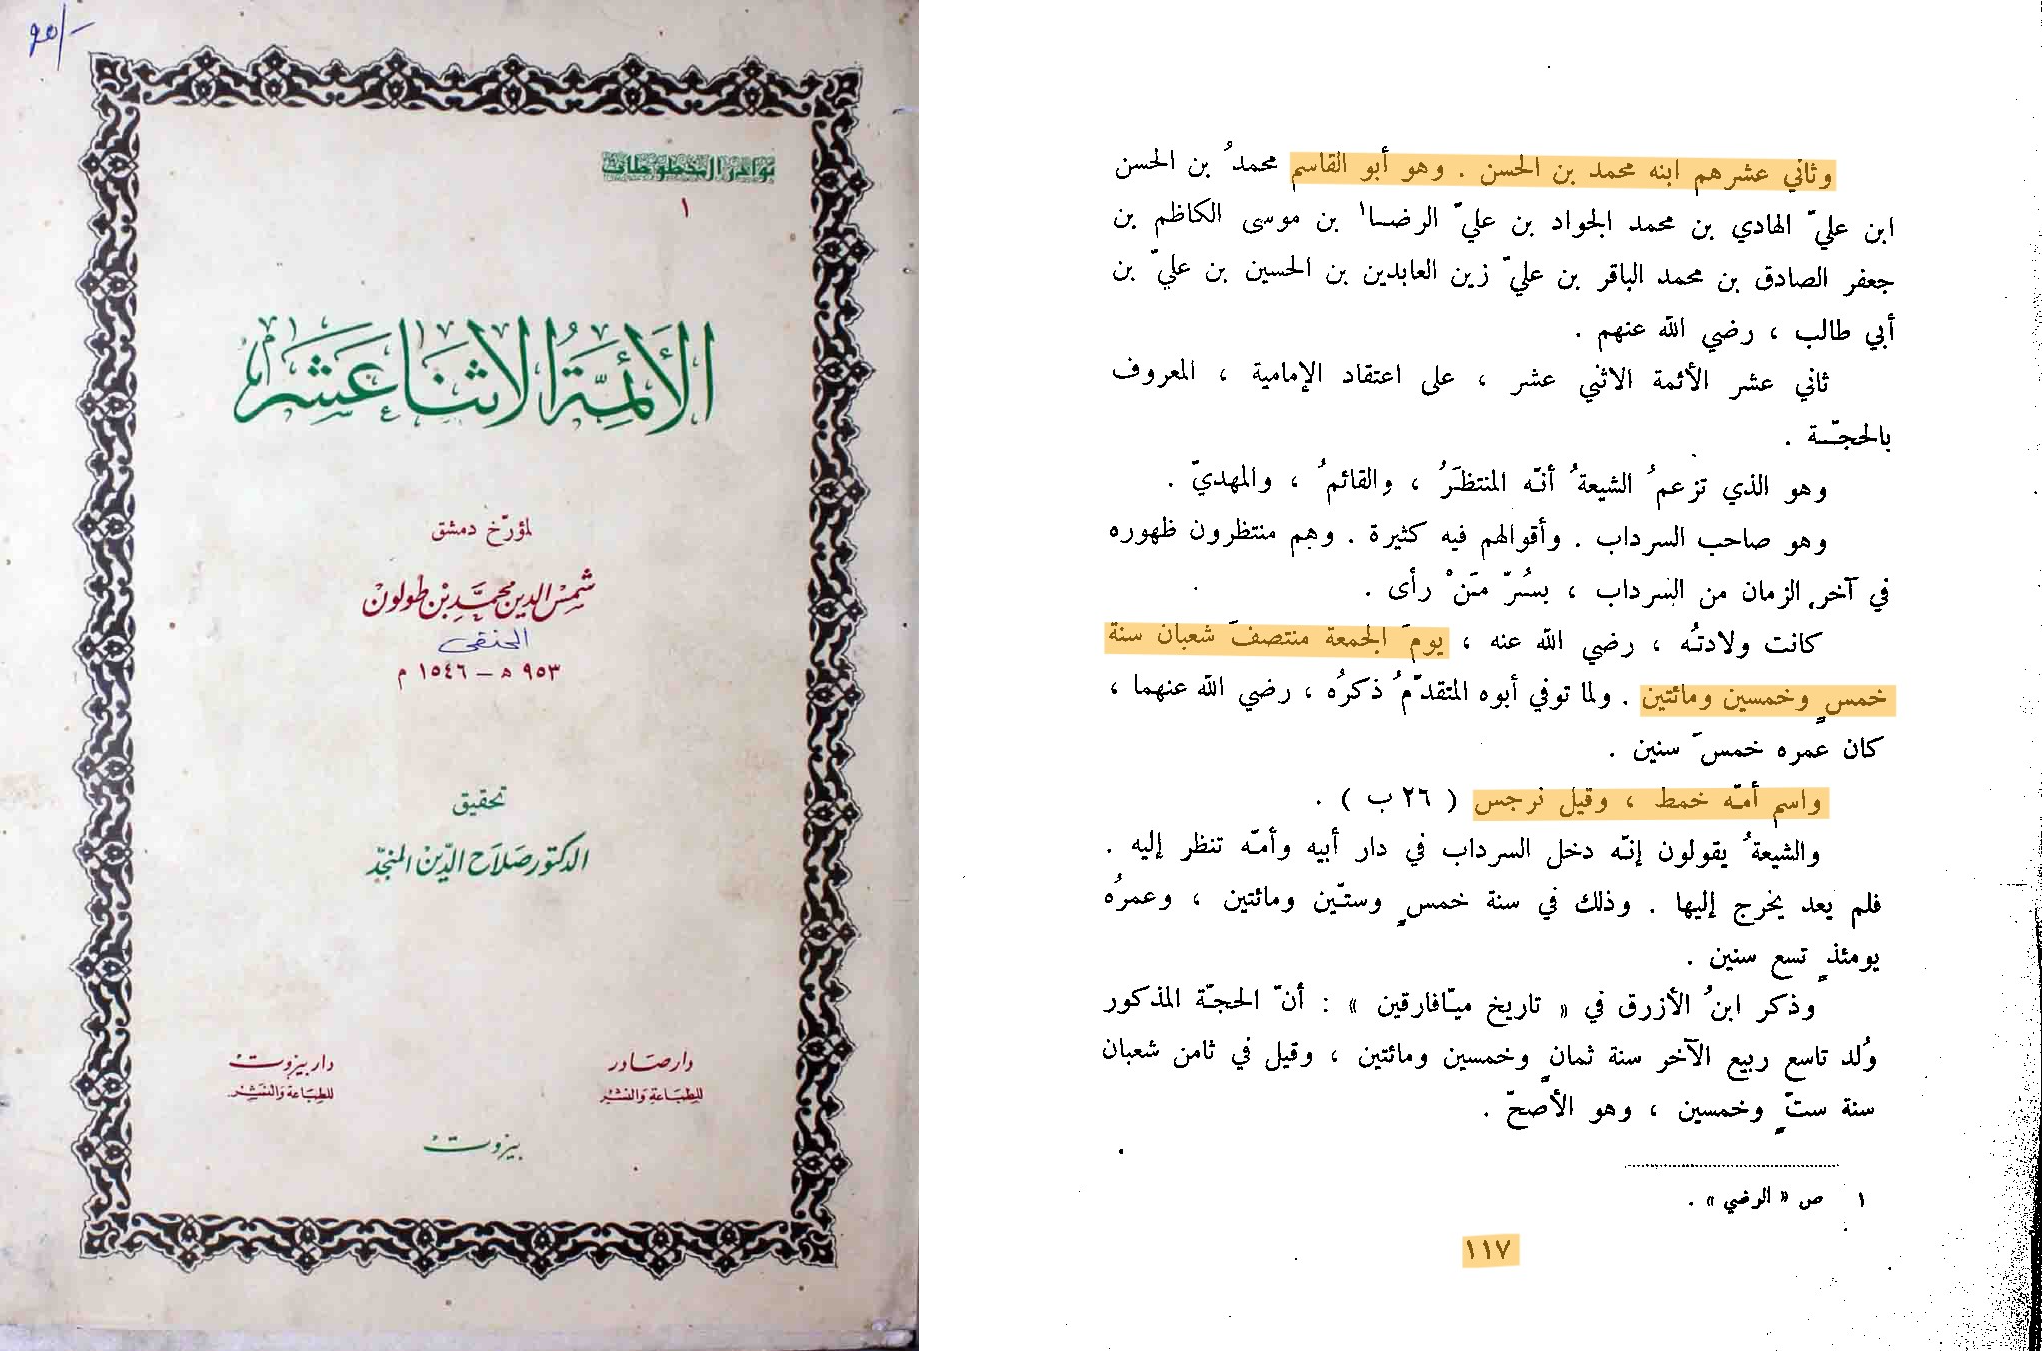 ٩٥/-
نوادر المخطوطات
١
الأئمة الاثنا عشر
لمؤرّخ دمشق
شمس الدين محمد بن طولون
الحنفي
٩٥٣ هـ – ١٥٤٦ م
تحقيق
الدكتور صلاح الدين المنجّد
دار صادر
للطباعة والنشر
دار بيروت
للطباعة والنشر
بيروت
وثاني عشرهم ابنه محمد بن الحسن . وهو أبو القاسم محمدُ بن الحسن
ابن عليّ الهادي بن محمد الجواد بن عليّ الرضا١ بن موسى الكاظم بن
جعفر الصادق بن محمد الباقر بن عليّ زين العابدين بن الحسين بن عليّ بن
أبي طالب ، رضي الله عنهم .
ثاني عشر الأئمة الاثني عشر ، على اعتقاد الإمامية ، المعروف
بالحجّة .
وهو الذي تزعمُ الشيعةُ أنّه المنتظَرُ ، والقائمُ ، والمهديّ .
وهو صاحب السرداب . وأقوالهم فيه كثيرة . وهم منتظرون ظهوره
في آخر الزمان من السرداب ، بسُرّ مَنْ رأى .
كانت ولادتُه ، رضي الله عنه ، يومَ الجمعة منتصفَ شعبان سنة
خمسٍ وخمسين ومائتين . ولما توفي أبوه المتقدّمُ ذكرُه ، رضي الله عنهما ،
كان عمره خمسَ سنين .
واسم أمّه خمط ، وقيل نرجس ( ٢٦ ب ) .
والشيعةُ يقولون إنّه دخل السرداب في دار أبيه وأمّه تنظر إليه .
فلم يعد يخرج إليها . وذلك في سنة خمسٍ وستّين ومائتين ، وعمرُه
يومئذٍ تسع سنين .
وذكر ابنُ الأزرق في « تاريخ ميّافارقين » : أنّ الحجّة المذكور
وُلد تاسع ربيع الآخر سنة ثمانٍ وخمسين ومائتين ، وقيل في ثامن شعبان
سنة ستٍّ وخمسين ، وهو الأصحّ .
١ ص « الرضي » .
١١٧